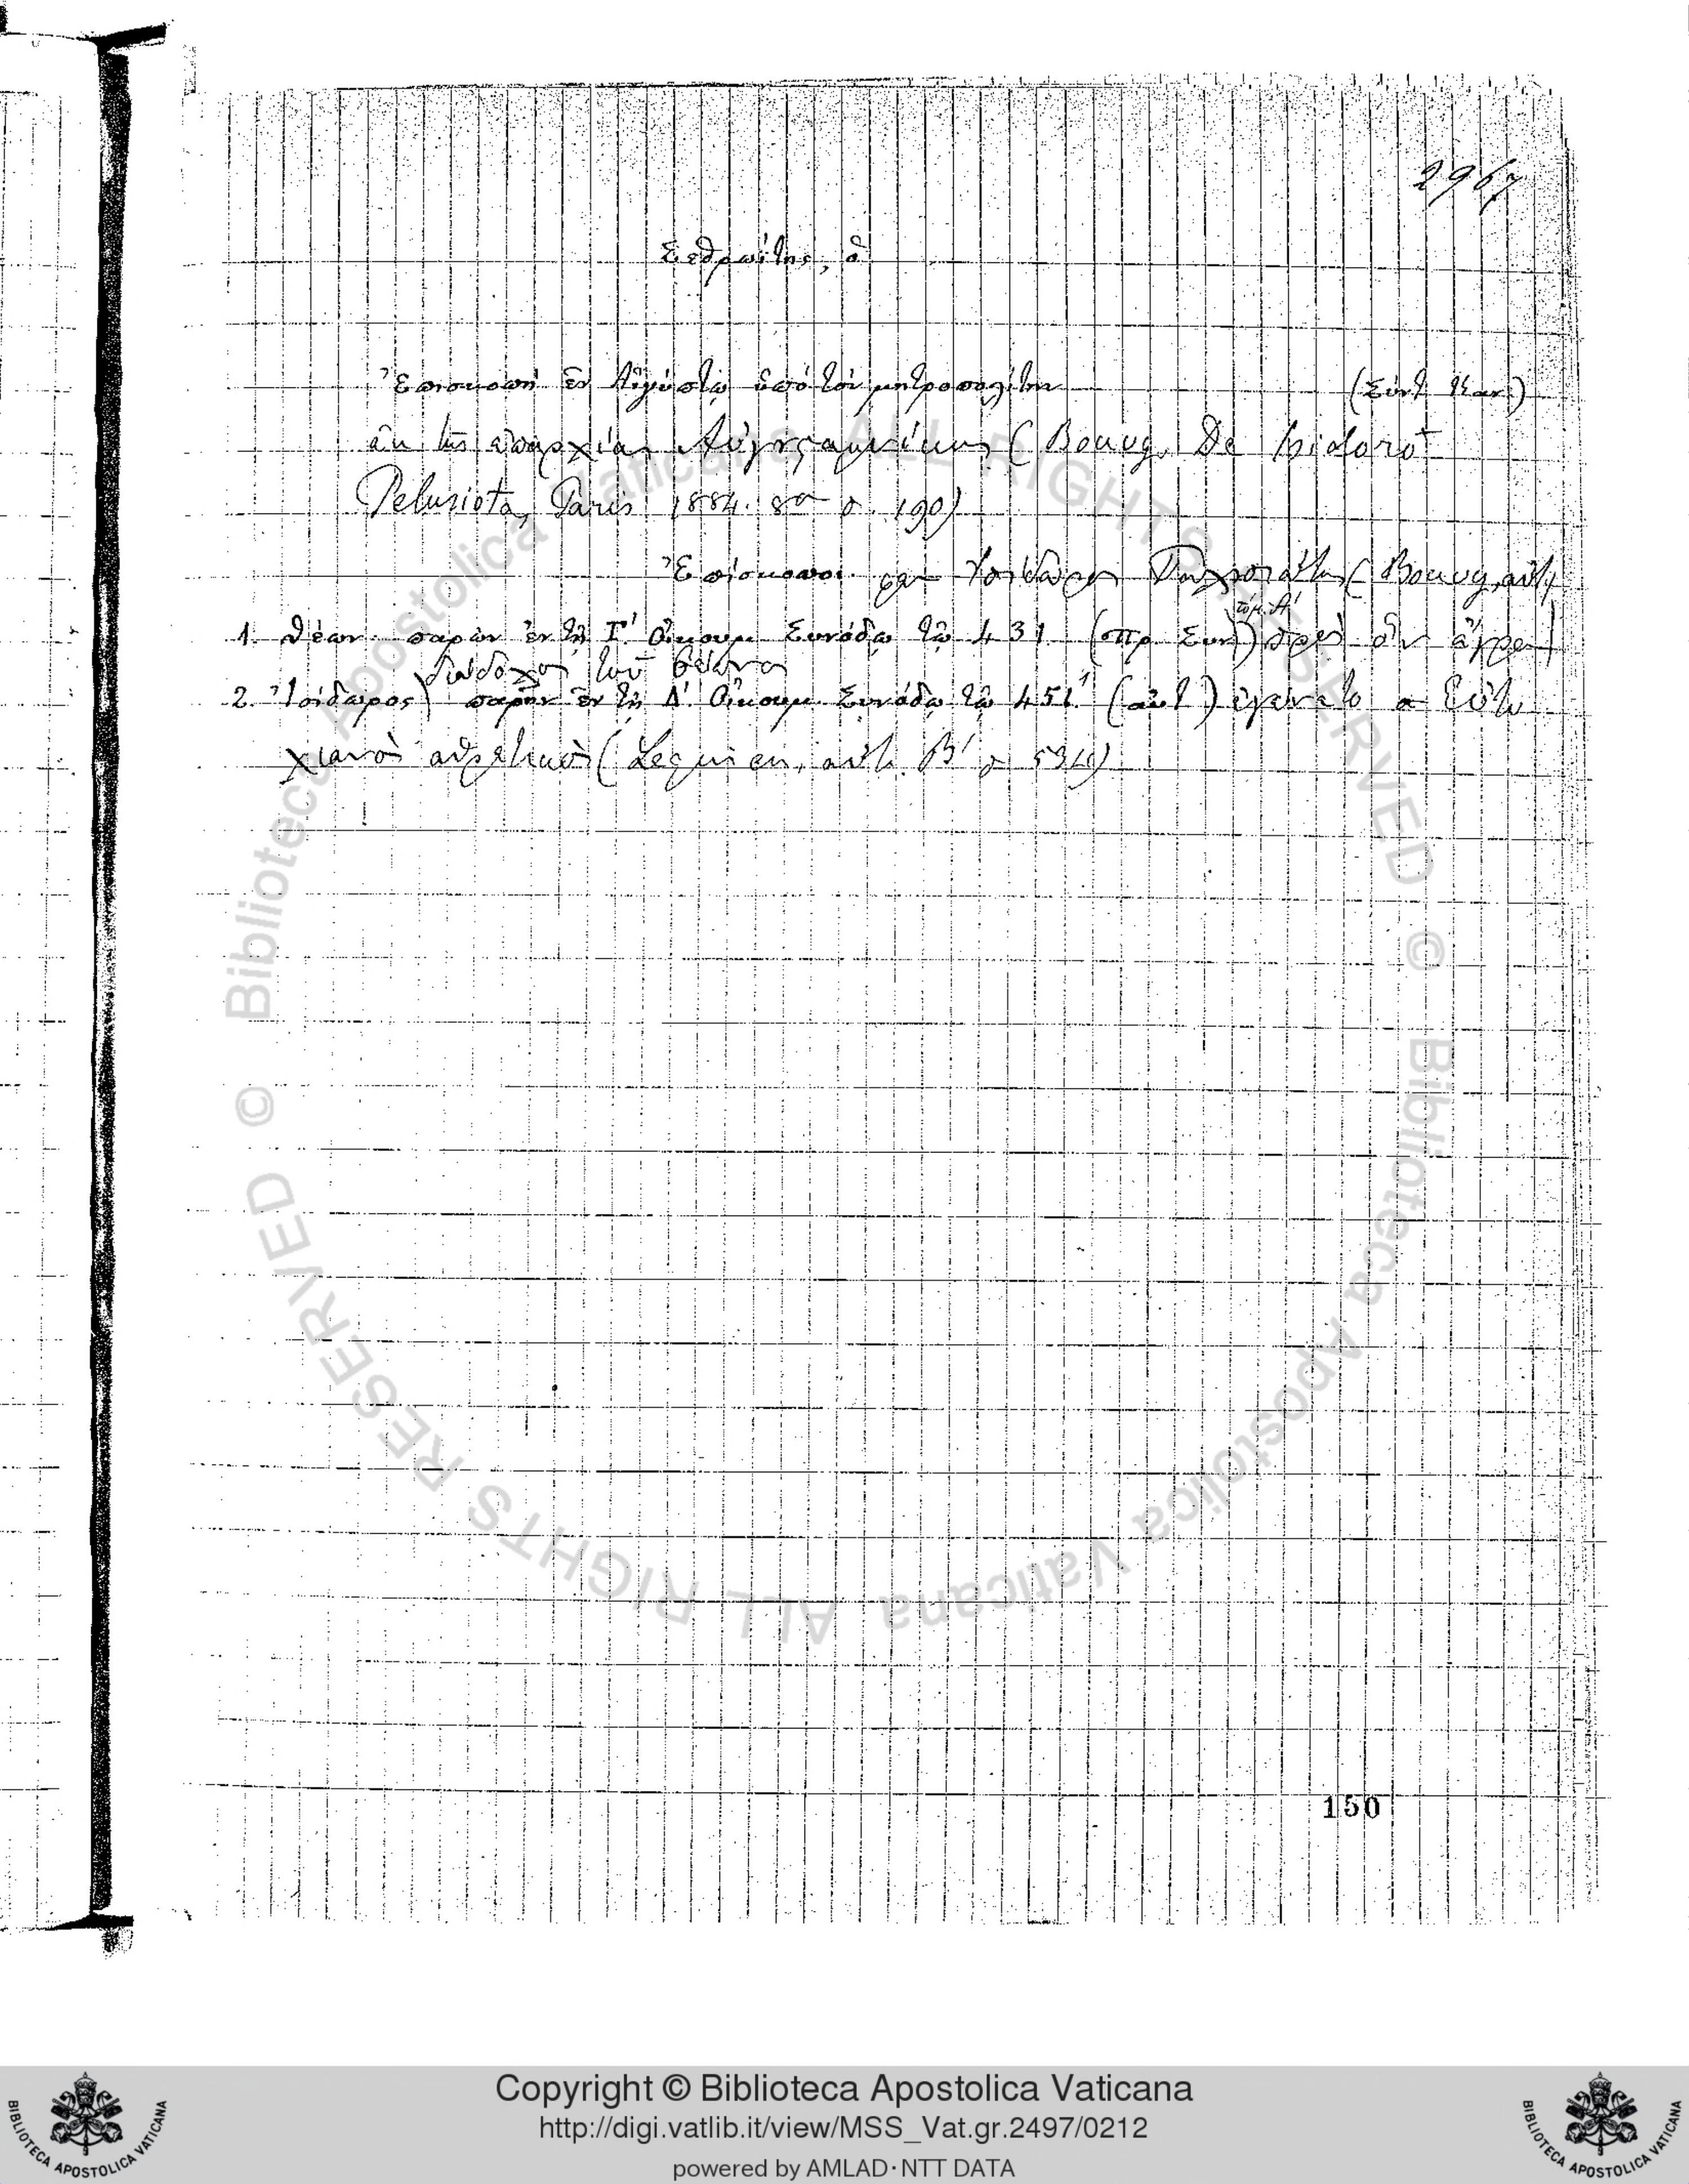 2967
Σεθρωίτης, ὁ
Ἐπισκοπὴ ἐν Αἰγύπτῳ ὑπὸ τὸν μητροπολίτην (Σύντ. Καν.)
ἐκ τῆς ἐπαρχίας Αὐγουσταμνίκης (Bouvy. De Isidoro
Pelusiota, Paris 1884. 8ον σ. 190)
Ἐπίσκοποι. Ἰσιδώρου Πηλουσιώτου (Bouvy, αὐτ.
τόμ. Α΄
1. Θέων. παρὼν ἐν τῇ Γ΄ Οἰκουμ. Συνόδῳ τῷ 431 (πρ. Συν.) πρὸς ὃν
διάδοχος τοῦ Θέωνος
2. Ἰσίδωρος παρὼν ἐν τῇ Δ΄. Οἰκουμ. Συνόδῳ τῷ 451 (αὐτ.) ἐγένετο Εὐτυ
χιανὸς αἱρετικὸς (Lequien, αὐτ. Β΄ σ.
150
Biblioteca Apostolica Vaticana ALL RIGHTS RESERVED ©
Copyright © Biblioteca Apostolica Vaticana
http://digi.vatlib.it/view/MSS_Vat.gr.2497/0212
powered by AMLAD·NTT DATA
BIBLIOTECA APOSTOLICA VATICANA
BIBLIOTECA APOSTOLICA VATICANA